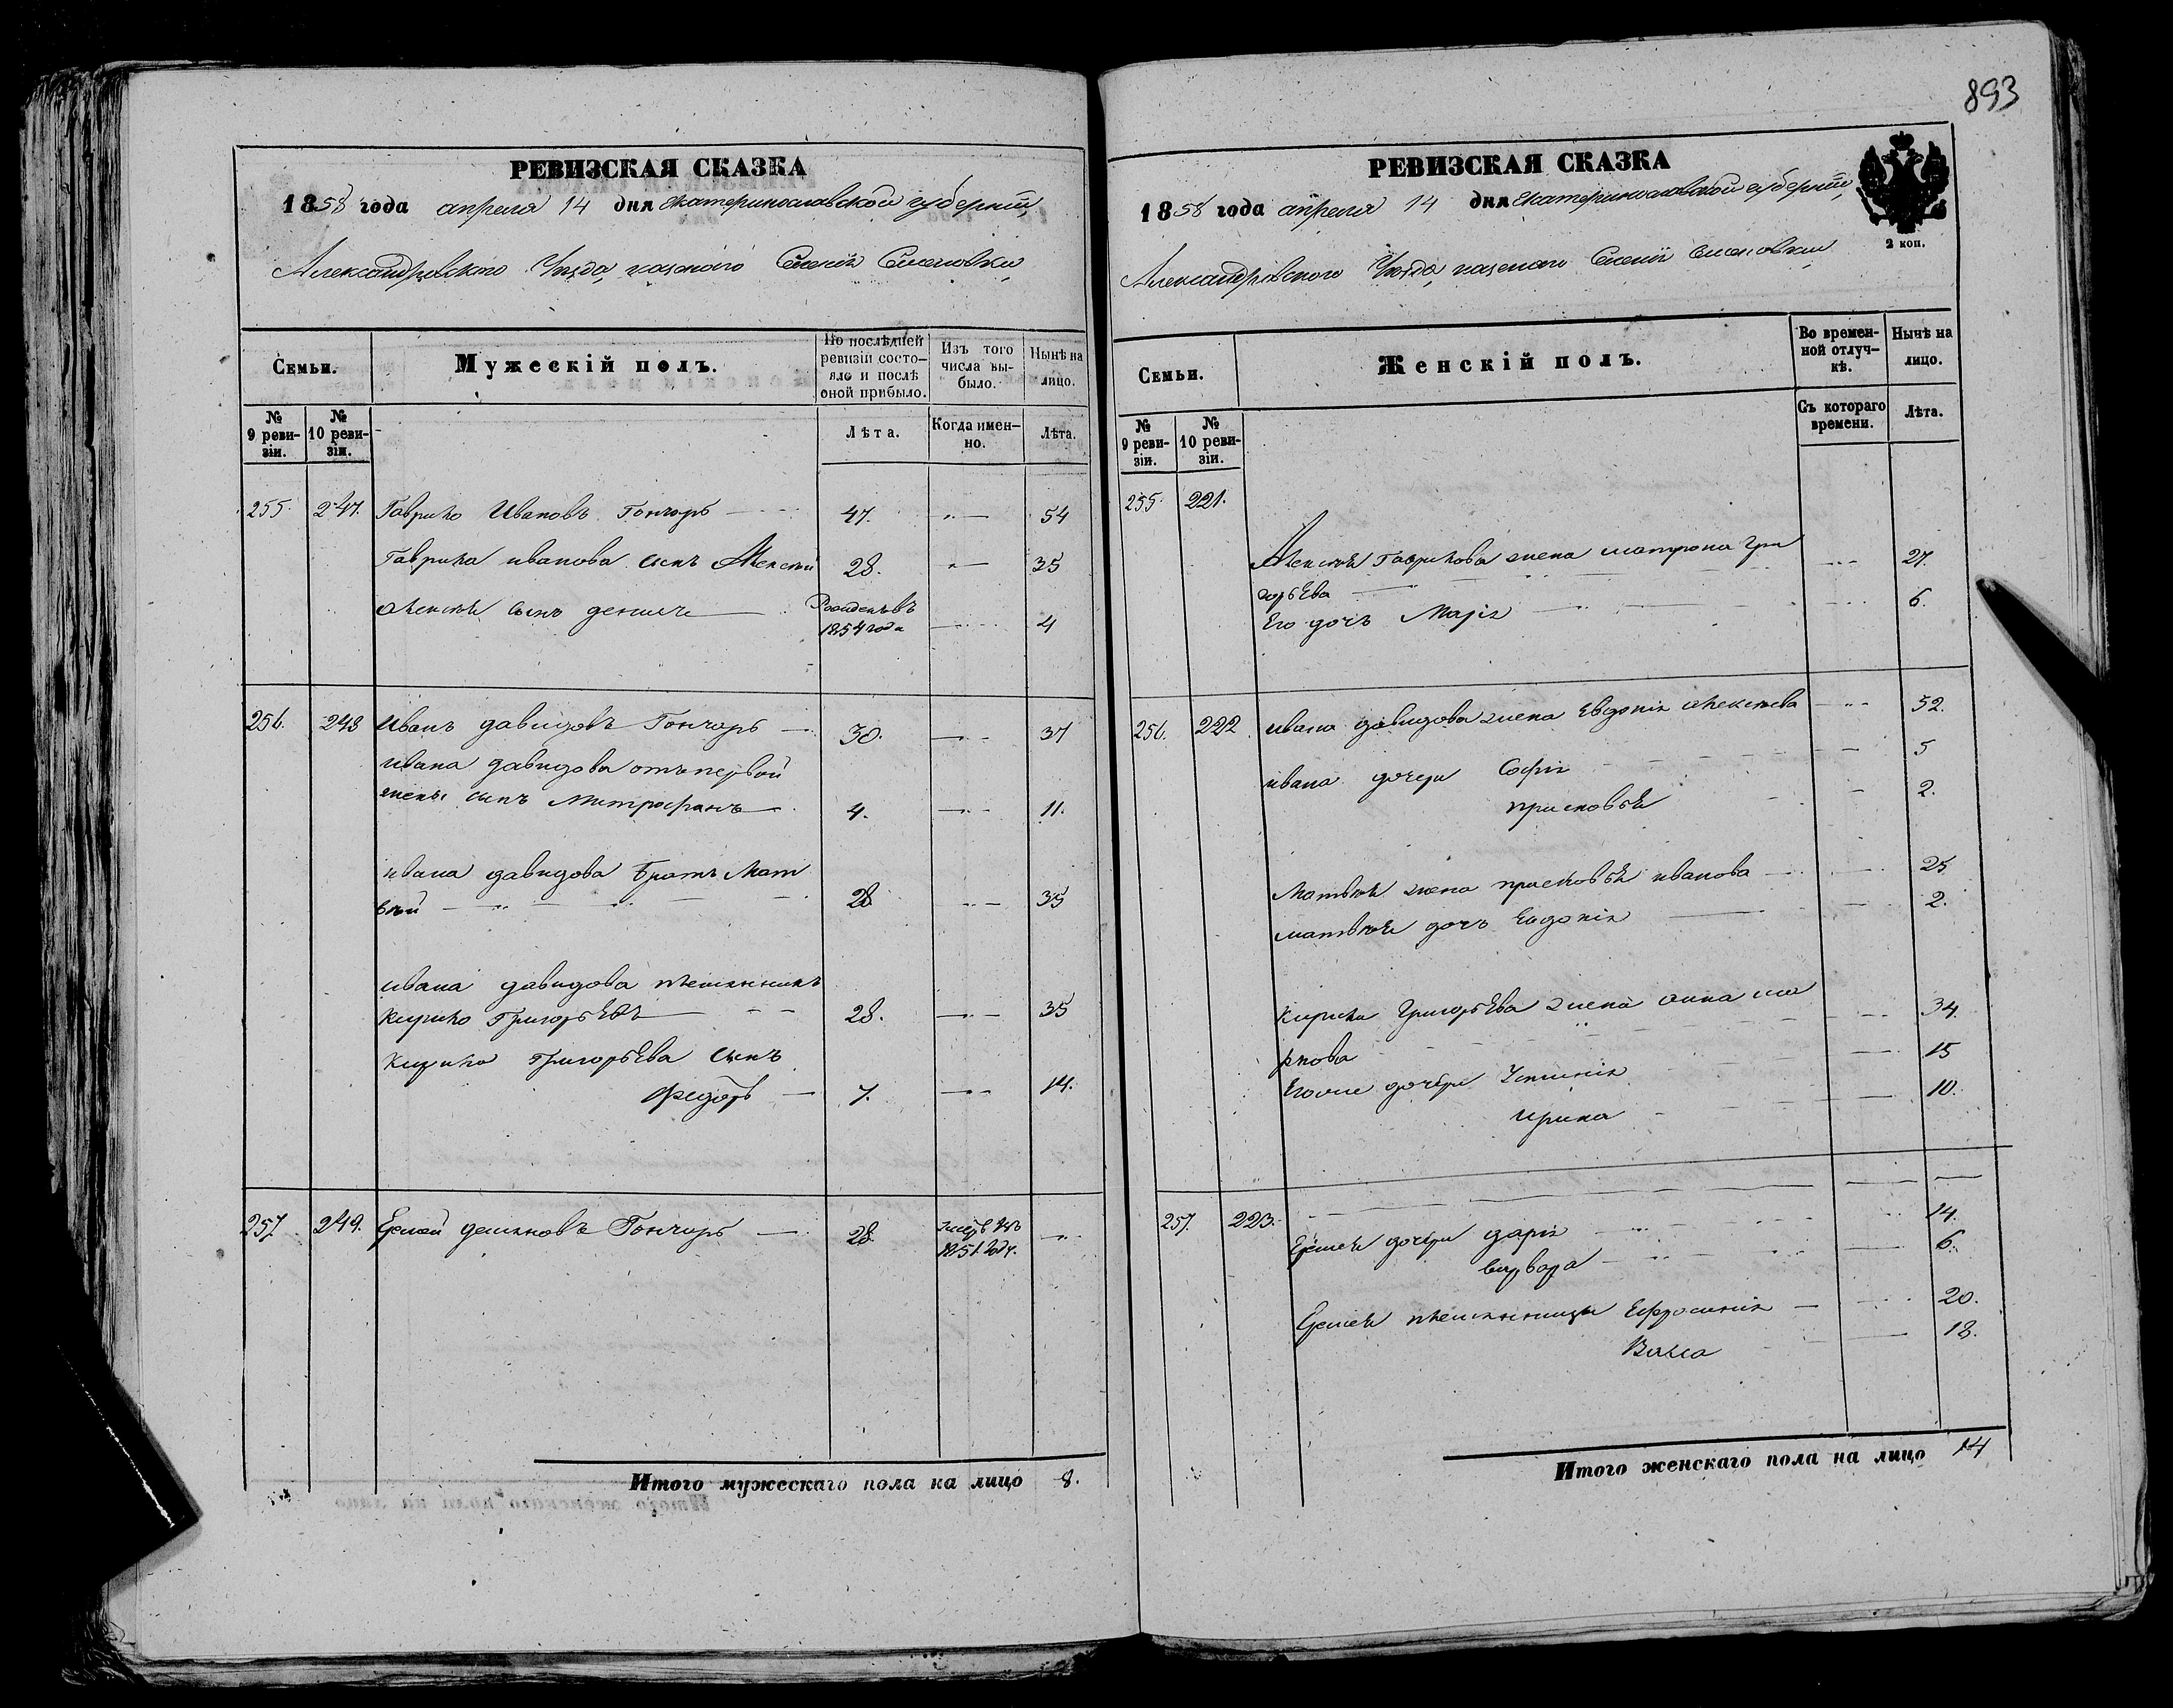 893
РЕВИЗСКАЯ СКАЗКА
1858 года апреля 14 дня Екатеринославской губерніи,
Александровского Уѣзда, казеного Селенія
Семьи.
Мужескій полъ.
По послѣдней ревизіи состояло и послѣ оной прибыло.
Изъ того числа выбыло.
Нынѣ на лицо.
№ 9 ревизіи.
№ 10 ревизіи.
Лѣта.
Когда именно.
Лѣта.
255. 247. Гаврило Ивановъ Гончаръ 47. 54
Гаврила иванова сынъ Алексѣй 28. 35
Алексѣя сынъ Рожденъ въ
1854 года 4
256. 248 Иванъ давидовъ Гончаръ 30. 37
ивана давидова отъ первой
жены сынъ Митрофанъ 4. 11.
ивана давидова братъ Мат
вѣй 28 35
ивана давидова племянникъ
Кирило Григорьевъ 28. 35
Кирила Григорьева сынъ
Федоръ 7. 14.
257. 249. Ермей Гончаръ 28.
1851 году.
Итого мужескаго пола на лицо 8.
РЕВИЗСКАЯ СКАЗКА
1858 года апреля 14 дня Екатеринославской губерніи,
2 коп.
Александровского Уѣзда, казеного Селенія
Семьи.
Женскій полъ.
Во временной отлучкѣ.
Нынѣ на лицо.
№ 9 ревизіи.
№ 10 ревизіи.
Съ котораго времени.
Лѣта.
255. 221.
Алексѣя Гаврилова жена матрона гри
горьева 27.
Его дочь Марія 6.
256. 222 ивана давидова жена Евдокія алексѣева 52.
ивана дочери Софія 5
присковья 2.
Матвѣя жена присковья иванова 25
матвѣя дочь Евдокія 2.
Кирила Григорьева жена анна ма
ркова 34.
Его дочери Устинія 15
ирина 10.
257. 223.
Ермея дочери дарія 14.
варвара 6.
Ермея племянницы Ефросинія 20.
18.
Итого женскаго пола на лицо 14